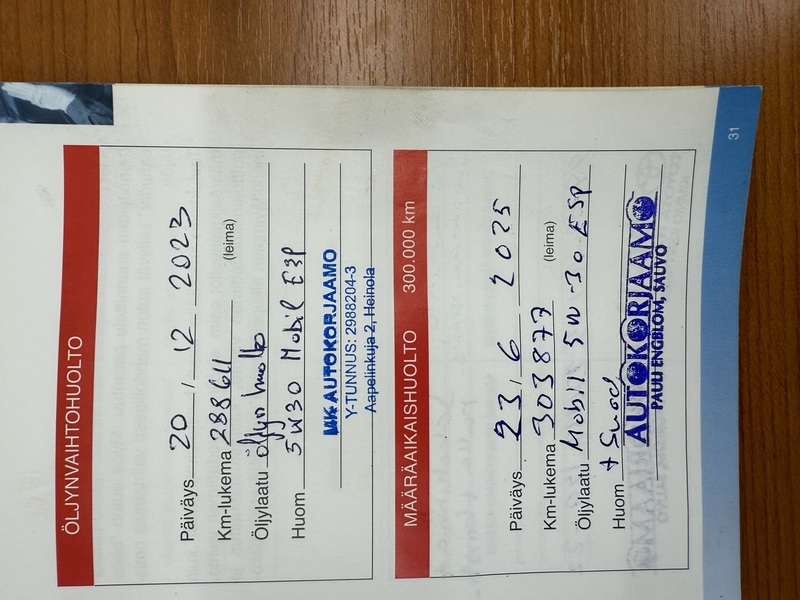 ÖLJYNVAIHTOHUOLTO
Päiväys 20 , 12 2023
Km-lukema 288611 (leima)
Öljylaatu öljyn huolto
Huom 5W30 Mobil ESP
MK AUTOKORJAAMO
Y-TUNNUS: 2988204-3
Aapelinkuja 2, Heinola
MÄÄRÄAIKAISHUOLTO 300.000 km
Päiväys 23, 6 2025
Km-lukema 303877 (leima)
Öljylaatu Mobil 5W-30 ESP
Huom + Suod
AUTOKORJAAMO
PAULI ENGBLOM, SAUVO
31